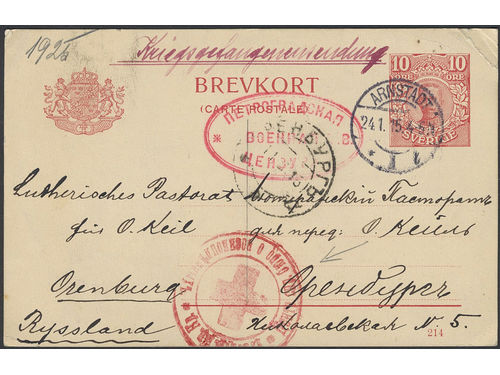 1925
Kriegsgefangenensendung
10 10
ÖRE ÖRE
BREVKORT
(CARTE POSTALE)
SVERIGE
ARNSTADT
24.1.15.
ПЕТРОГРАДСКАЯ
ВОЕННАЯ
ЦЕНЗУРА
ОРЕНБУРГЪ
Lutherisches Pastorat
für O. Keil
Orenburg
Ryssland
Лютеранскій Пасторатъ
для перед: О. Кейль
Оренбургъ
Николаевская N. 5.
214